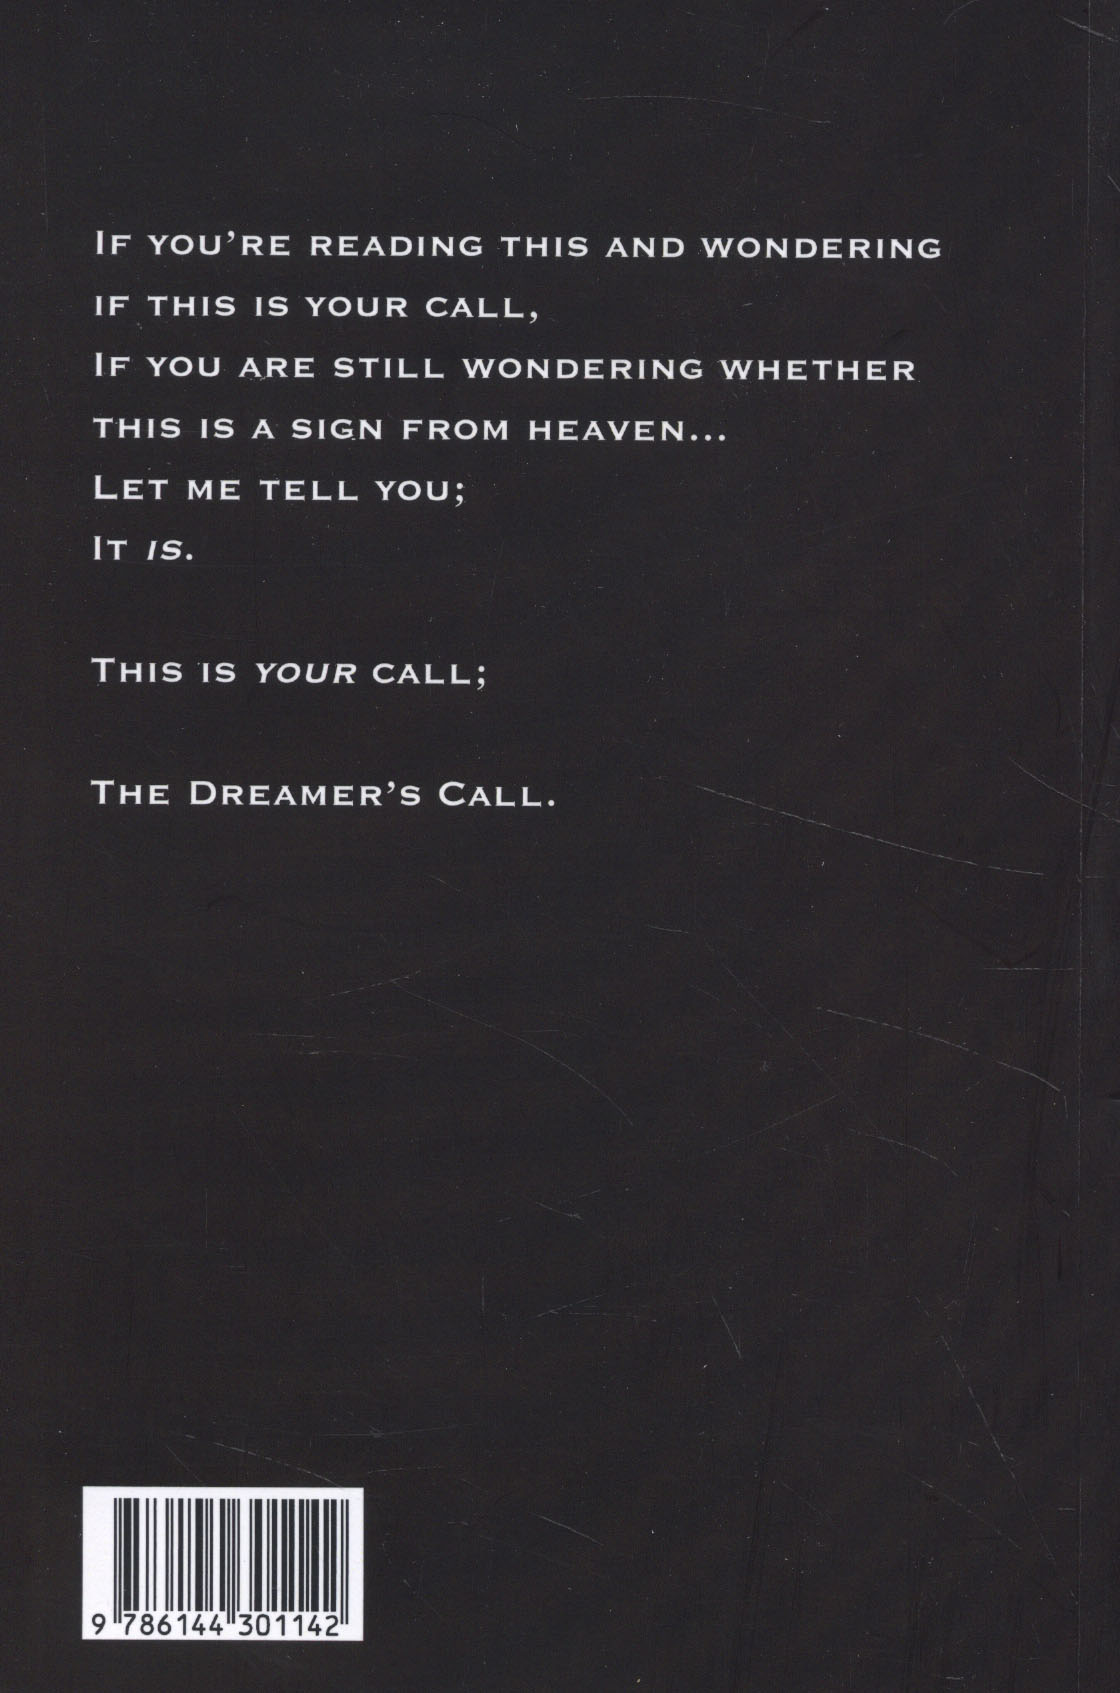 If you're reading this and wondering
if this is your call,
If you are still wondering whether
this is a sign from heaven...
Let me tell you;
It is.
This is your call;
The Dreamer's Call.
9 786144 301142